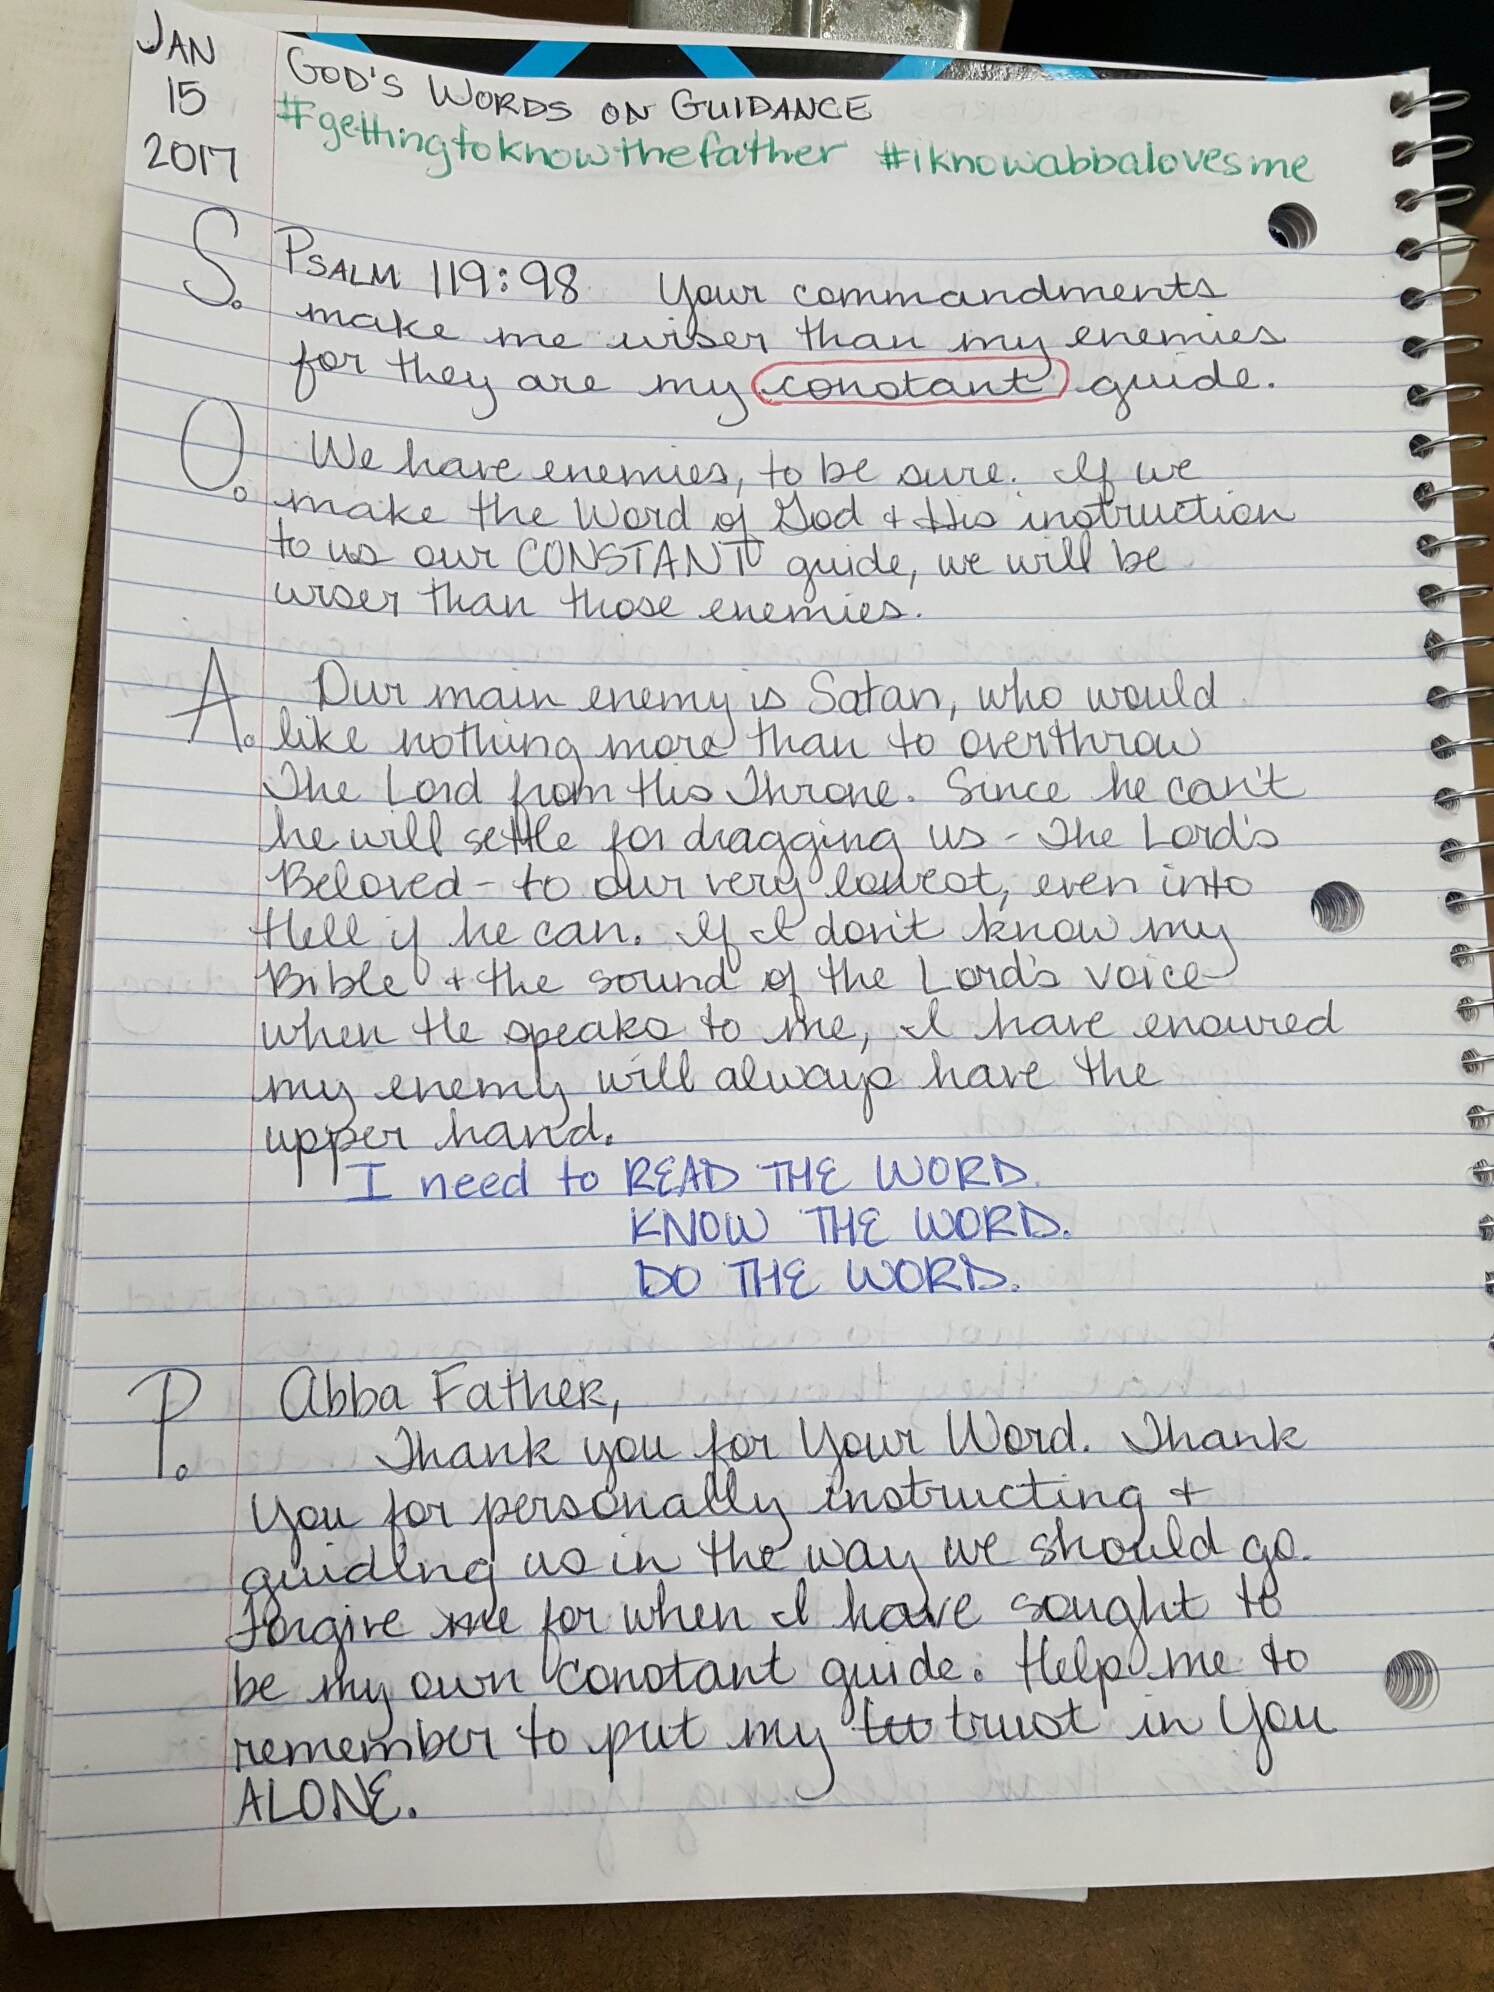 JAN
15
2017
GOD'S WORDS ON GUIDANCE
#gettingtoknowthefather #iknowabbalovesme
S. PSALM 119:98 Your commandments
make me wiser than my enemies
for they are my constant guide.
O. We have enemies, to be sure. If we
make the Word of God + His instruction
to us our CONSTANT guide, we will be
wiser than those enemies.
A. Our main enemy is Satan, who would
like nothing more than to overthrow
The Lord from His Throne. Since he can't
he will settle for dragging us - The Lord's
Beloved - to our very lowest, even into
Hell if he can. If I don't know my
Bible + the sound of the Lord's voice
when He speaks to me, I have ensured
my enemy will always have the
upper hand.
I need to READ THE WORD.
KNOW THE WORD.
DO THE WORD.
P. Abba Father,
Thank you for Your Word. Thank
You for personally instructing +
guiding us in the way we should go.
Forgive me for when I have sought to
be my own constant guide. Help me to
remember to put my trust in You
ALONE.